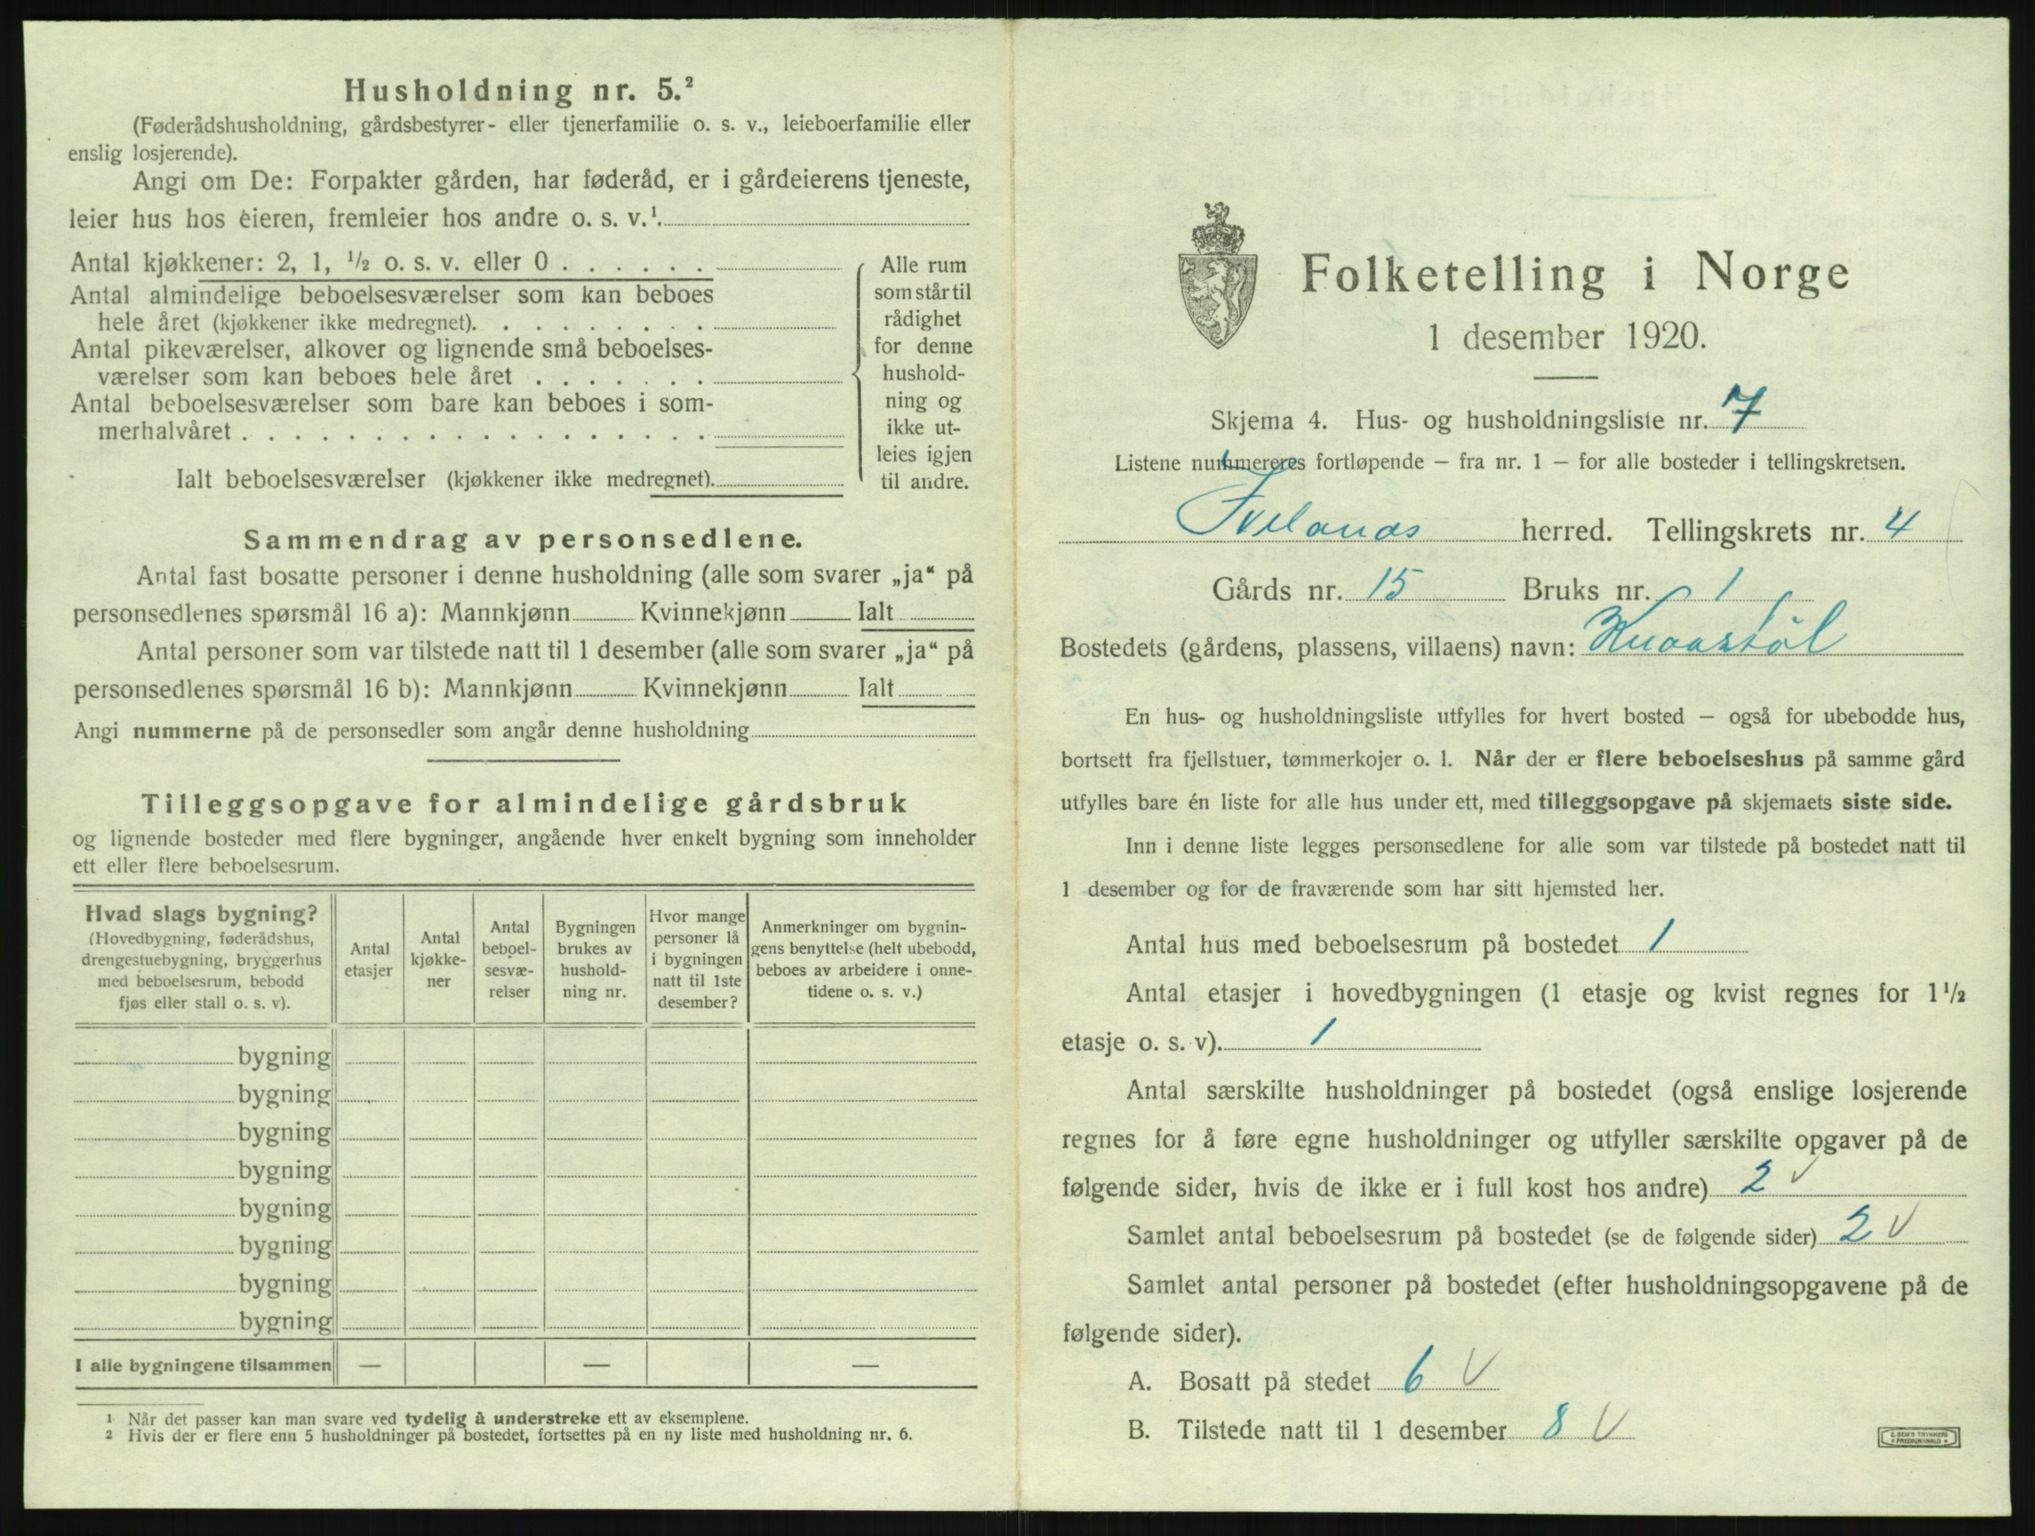 Husholdning nr. 5.²
(Føderådshusholdning, gårdsbestyrer- eller tjenerfamilie o. s. v., leieboerfamilie eller
enslig losjerende).
Angi om De: Forpakter gården, har føderåd, er i gårdeierens tjeneste,
leier hus hos eieren, fremleier hos andre o. s. v.¹.
Antal kjøkkener: 2, 1, ½ o. s. v. eller 0 . . . . . .
Antal almindelige beboelsesværelser som kan beboes
hele året (kjøkkener ikke medregnet). . . . . . . . .
Antal pikeværelser, alkover og lignende små beboelses-
værelser som kan beboes hele året . . . . . . .
Antal beboelsesværelser som bare kan beboes i som-
merhalvåret . . . . . . . . . . . . . . . . . .
Ialt beboelsesværelser (kjøkkener ikke medregnet).
Alle rum
som står til
rådighet
for denne
hushold-
ning og
ikke ut-
leies igjen
til andre.
Sammendrag av personsedlene.
Antal fast bosatte personer i denne husholdning (alle som svarer „ja“ på
personsedlenes spørsmål 16 a): Mannkjønn Kvinnekjønn Ialt
Antal personer som var tilstede natt til 1 desember (alle som svarer „ja“ på
personsedlenes spørsmål 16 b): Mannkjønn Kvinnekjønn Ialt
Angi nummerne på de personsedler som angår denne husholdning
Tilleggsopgave for almindelige gårdsbruk
og lignende bosteder med flere bygninger, angående hver enkelt bygning som inneholder
ett eller flere beboelsesrum.
Hvad slags bygning?
(Hovedbygning, føderådshus,
drengestuebygning, bryggerhus
med beboelsesrum, bebodd
fjøs eller stall o. s. v).
Antal
etasjer
Antal
kjøkke-
ner
Antal
beboel-
sesvæ-
relser
Bygningen
brukes av
hushold-
ning nr.
Hvor mange
personer lå
i bygningen
natt til 1ste
desember?
Anmerkninger om bygnin-
gens benyttelse (helt ubebodd,
beboes av arbeidere i onne-
tidene o. s. v.)
bygning
bygning
bygning
bygning
bygning
bygning
bygning
bygning
I alle bygningene tilsammen — — —
1 Når det passer kan man svare ved tydelig å understreke ett av eksemplene.
2 Hvis der er flere enn 5 husholdninger på bostedet, fortsettes på en ny liste med husholdning nr. 6.
Folketelling i Norge
1 desember 1920.
Skjema 4. Hus- og husholdningsliste nr. 7
Listene nummereres fortløpende – fra nr. 1 – for alle bosteder i tellingskretsen.
Ivelands herred. Tellingskrets nr. 4
Gårds nr. 15 Bruks nr. 1
Bostedets (gårdens, plassens, villaens) navn: Knaastöl
En hus- og husholdningsliste utfylles for hvert bosted – også for ubebodde hus,
bortsett fra fjellstuer, tømmerkojer o. l. Når der er flere beboelseshus på samme gård
utfylles bare én liste for alle hus under ett, med tilleggsopgave på skjemaets siste side.
Inn i denne liste legges personsedlene for alle som var tilstede på bostedet natt til
1 desember og for de fraværende som har sitt hjemsted her.
Antal hus med beboelsesrum på bostedet 1
Antal etasjer i hovedbygningen (1 etasje og kvist regnes for 1½
etasje o. s. v). 1
Antal særskilte husholdninger på bostedet (også enslige losjerende
regnes for å føre egne husholdninger og utfyller særskilte opgaver på de
følgende sider, hvis de ikke er i full kost hos andre) 2 V
Samlet antal beboelsesrum på bostedet (se de følgende sider) 2 V
Samlet antal personer på bostedet (efter husholdningsopgavene på de
følgende sider).
A. Bosatt på stedet 6 V
B. Tilstede natt til 1 desember 8 V